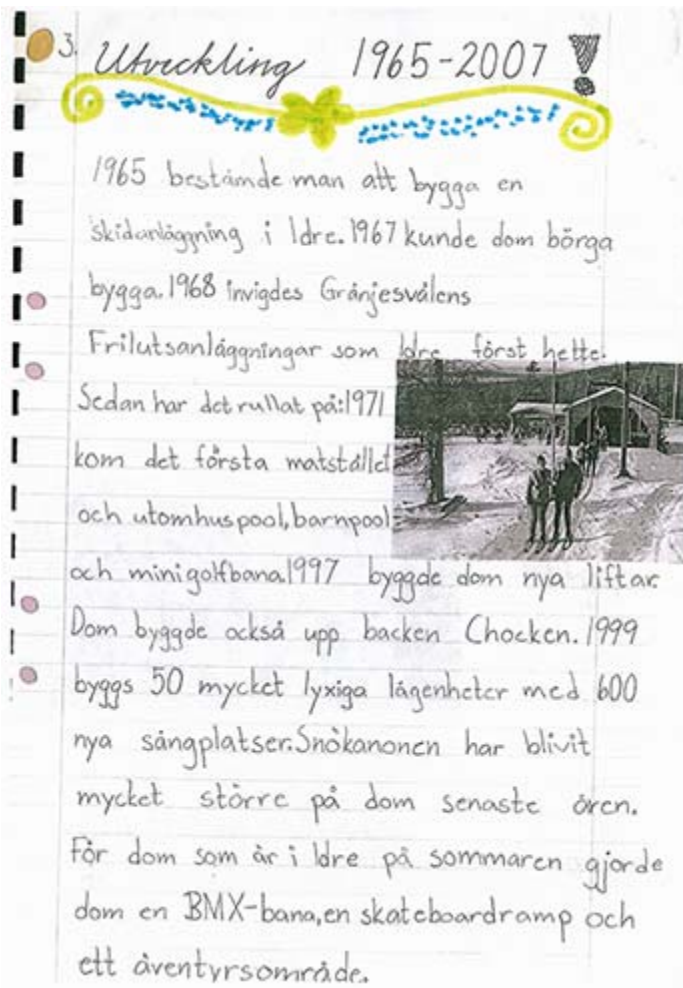 3. Utveckling 1965-2007!
1965 bestämde man att bygga en
skidanläggning i Idre. 1967 kunde dom börga
bygga. 1968 invigdes Gränjesvålens
Frilutsanläggningar som Idre först hette.
Sedan har det rullat på: 1971
kom det första matstället
och utomhuspool, barnpool
och minigolfbana. 1997 byggde dom nya liftar.
Dom byggde också upp backen Chocken. 1999
byggs 50 mycket lyxiga lägenheter med 600
nya sängplatser. Snökanonen har blivit
mycket större på dom senaste åren.
För dom som är i Idre på sommaren gjorde
dom en BMX-bana, en skateboardramp och
ett äventyrsområde.